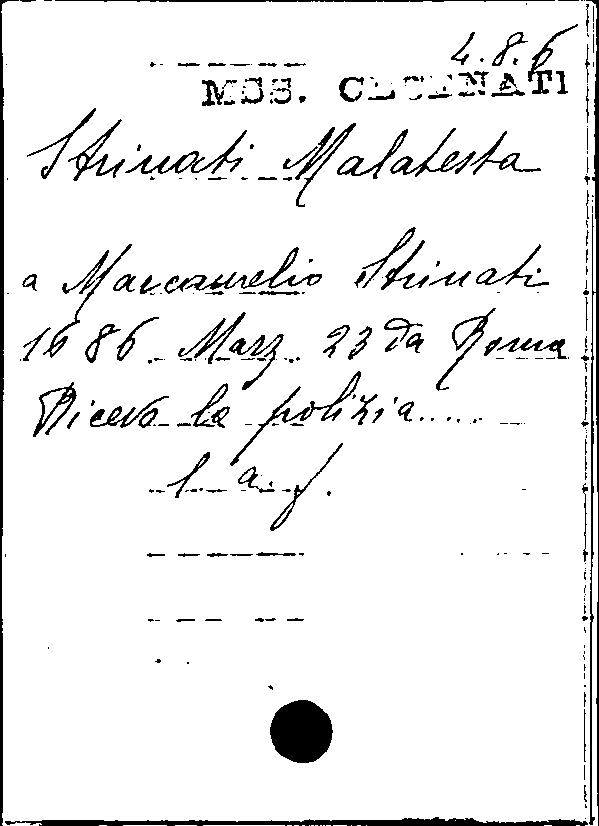 4.8.6
MSS. CECENATI
Strinati Malatesta
a Marcaurelio Strinati
1686. Marz. 23 da Roma
Ricevo la polizia.....
l. a. f.